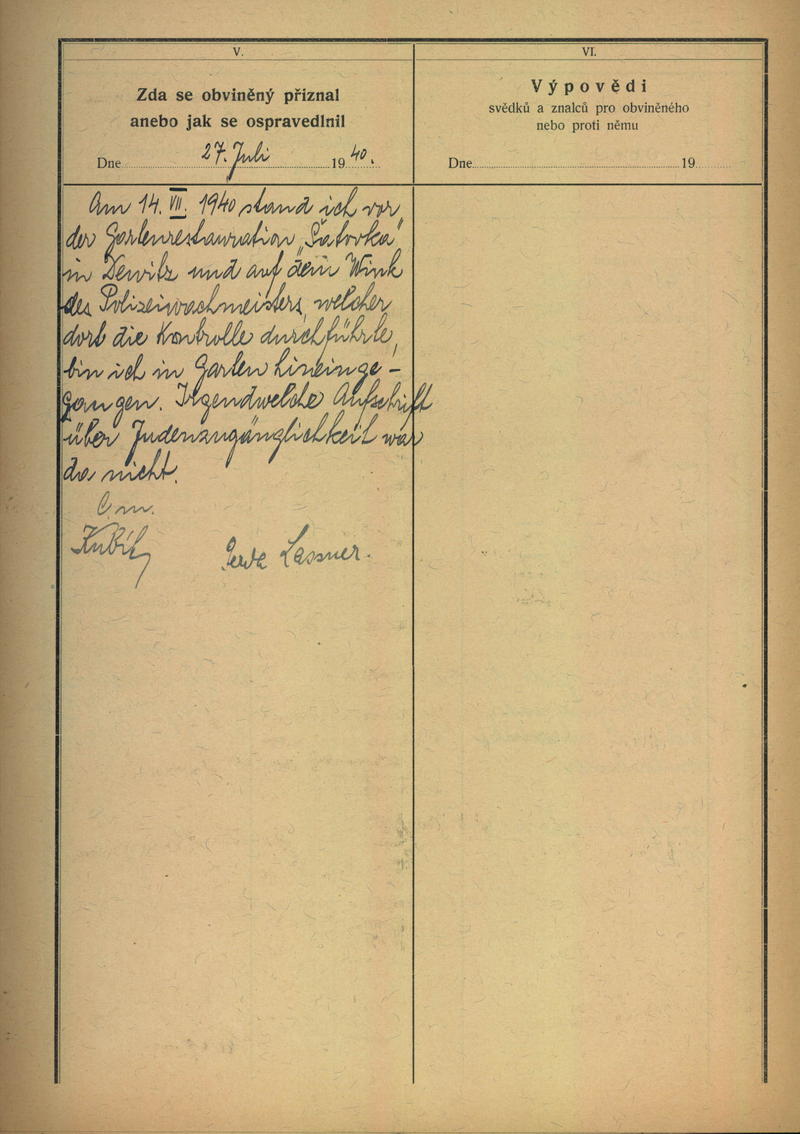 V.
Zda se obviněný přiznal
anebo jak se ospravedlnil
Dne 27. Juli 1940.
Am 14. VII. 1940 stand ich vor
der Gartenrestauration „Šatovka"
in Dewitz und auf dem Wink
des Polizeiwachmeisters, welcher
dort die Kontrolle durchführte,
bin ich in Garten hineinge-
gangen. Irgendwelche Aufschrift
über Judenzugänglichkeit war
da nicht.
Lasner.
VI.
Výpovědi
svědků a znalců pro obviněného
nebo proti němu
Dne 19